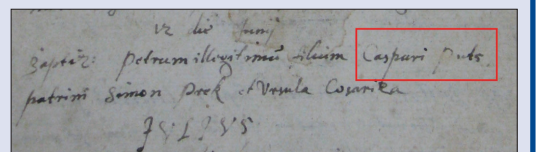 12 die Junij
Baptiz: Petrum illegitimũ filium Caspari Puts
patrini Simon Prek et Ursula Cosarika
JVLIVS